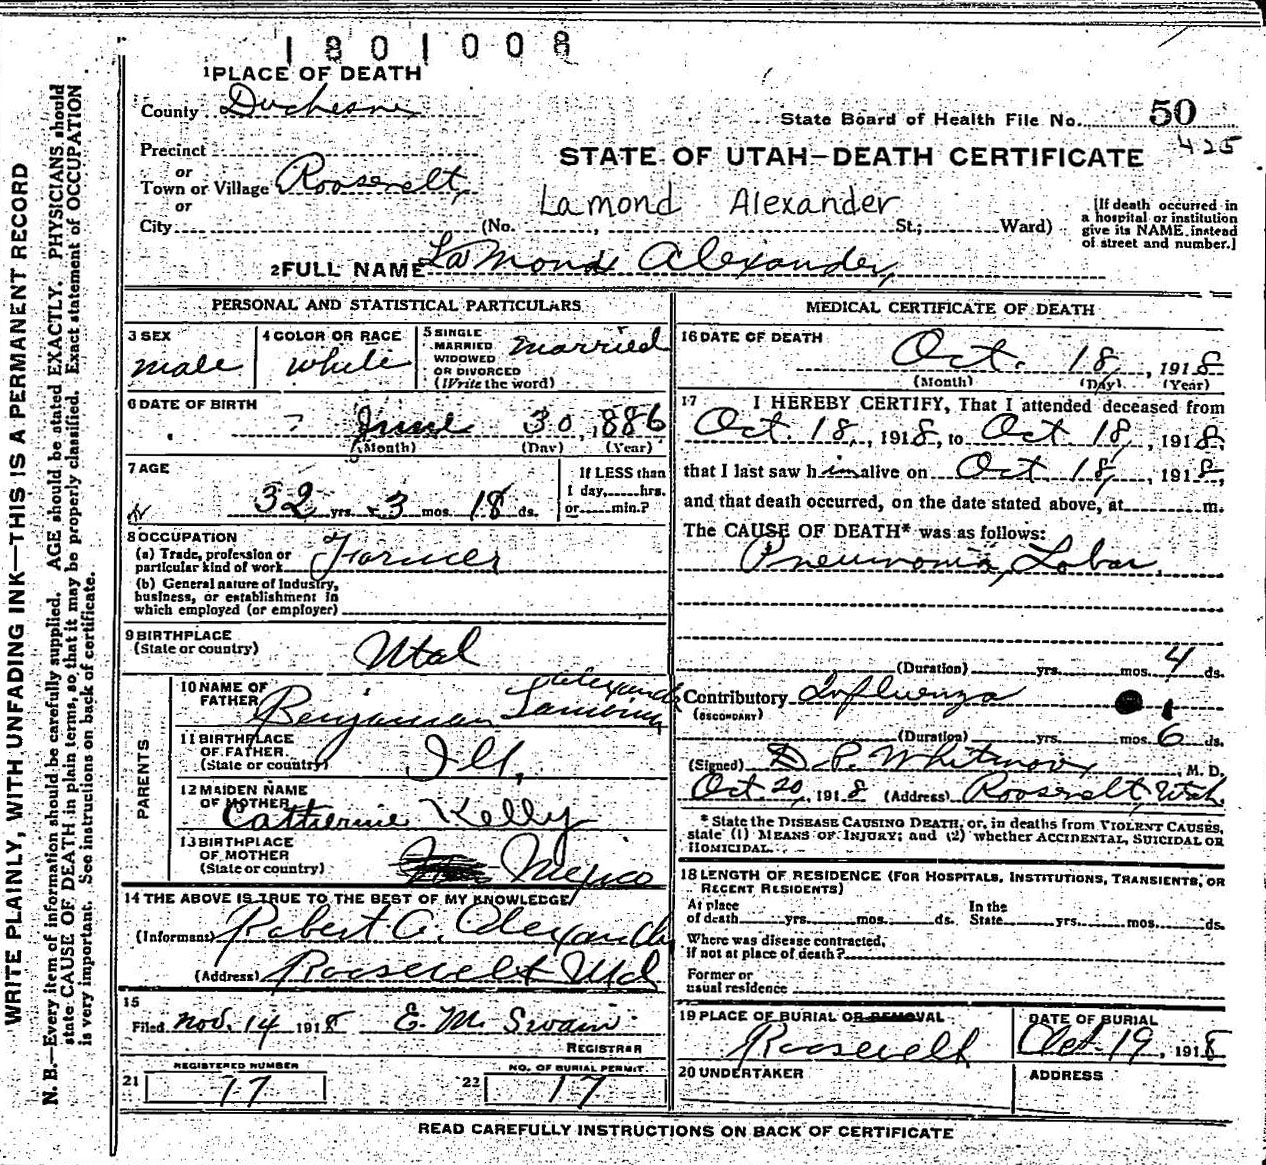 1801008
1 PLACE OF DEATH
County Duchesne
State Board of Health File No. 50
425
Precinct
or
Town or Village Roosevelt,
or
City
STATE OF UTAH—DEATH CERTIFICATE
Lamond Alexander
(No. , St.; Ward)
[If death occurred in a hospital or institution give its NAME instead of street and number.]
2 FULL NAME LaMond Alexander,
PERSONAL AND STATISTICAL PARTICULARS
3 SEX
male
4 COLOR OR RACE
white
5 SINGLE
MARRIED
WIDOWED
OR DIVORCED
(Write the word)
married
6 DATE OF BIRTH
June 30, 1886
(Month) (Day) (Year)
7 AGE
32 yrs. 3 mos. 18 ds.
If LESS than
1 day,......hrs.
or......min.?
8 OCCUPATION
(a) Trade, profession or
particular kind of work Farmer
(b) General nature of Industry,
business, or establishment in
which employed (or employer)
9 BIRTHPLACE
(State or country)
Utah
PARENTS
10 NAME OF
FATHER
Benjaman Alexander
11 BIRTHPLACE
OF FATHER
(State or country)
Ill.
12 MAIDEN NAME
OF MOTHER
Catherine Kelly
13 BIRTHPLACE
OF MOTHER
(State or country)
Mexico
14 THE ABOVE IS TRUE TO THE BEST OF MY KNOWLEDGE
(Informant) Robert C. Alexander
(Address) Roosevelt Utah
15
Filed Nov. 14 1918 E. M. Swain
REGISTRAR
21
REGISTERED NUMBER
17
22
NO. OF BURIAL PERMIT
17
MEDICAL CERTIFICATE OF DEATH
16 DATE OF DEATH
Oct. 18, 1918
(Month) (Day) (Year)
17 I HEREBY CERTIFY, That I attended deceased from
Oct. 18, 1918, to Oct 18, 1918,
that I last saw him alive on Oct. 18, 1918,
and that death occurred, on the date stated above, at m.
The CAUSE OF DEATH* was as follows:
Pneumonia, Lobar,
(Duration) yrs. mos. 4 ds.
Contributory Influenza
(SECONDARY)
(Duration) yrs. mos. 6 ds.
(Signed) D. P. Whitmore, M. D.
Oct. 20, 1918 (Address) Roosevelt, Utah.
* State the DISEASE CAUSING DEATH, or, in deaths from VIOLENT CAUSES,
state (1) MEANS OF INJURY; and (2) whether ACCIDENTAL, SUICIDAL OR
HOMICIDAL.
18 LENGTH OF RESIDENCE (FOR HOSPITALS, INSTITUTIONS, TRANSIENTS, OR
RECENT RESIDENTS)
At place
of death yrs. mos. ds.
In the
State yrs. mos. ds.
Where was disease contracted,
if not at place of death?
Former or
usual residence
19 PLACE OF BURIAL OR REMOVAL
Roosevelt
DATE OF BURIAL
Oct 19, 1918
20 UNDERTAKER
ADDRESS
READ CAREFULLY INSTRUCTIONS ON BACK OF CERTIFICATE
WRITE PLAINLY, WITH UNFADING INK—THIS IS A PERMANENT RECORD
N. B.—Every item of information should be carefully supplied. AGE should be stated EXACTLY. PHYSICIANS should
state CAUSE OF DEATH in plain terms, so that it may be properly classified. Exact statement of OCCUPATION
is very important. See instructions on back of certificate.